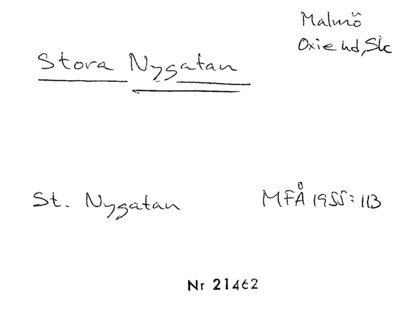 Malmö
Oxie hd, Sk
Stora Nygatan
St. Nygatan MFÅ 1955:113
Nr 21462